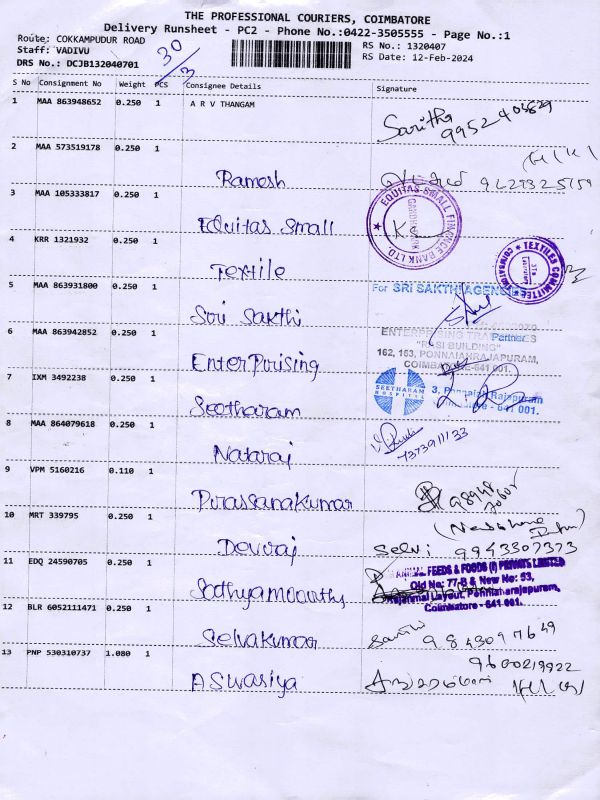 THE PROFESSIONAL COURIERS, COIMBATORE
Delivery Runsheet - PC2 - Phone No.:0422-3505555 - Page No.:1
Route: COKKAMPUDUR ROAD
RS No.: 1320407
Staff: VADIVU
RS Date: 12-Feb-2024
DRS No.: DCJB132040701
30/3
S No Consignment No Weight PCS Consignee Details Signature
1 MAA 863948652 0.250 1 A R V THANGAM
Saritha
2 MAA 573519178 0.250 1
Ramesh
3 MAA 105333817 0.250 1
EQUITAS SMALL FINANCE BANK LTD.
Equitas Small
4 KRR 1321932 0.250 1
TEXTILES COMMITTEE
Textile
5 MAA 863931800 0.250 1
For SRI SAKTHI AGENCIES
Sri Sakthi
Partner
6 MAA 863942852 0.250 1
"RASI BUILDING"
162, 163, PONNAIAHRAJAPURAM,
COIMBATORE-641 001.
Enterprising
7 IXM 3492238 0.250 1
SEETHARAM HOSPITAL
3, Ponnaiah Rajapuram
Coimbatore - 641 001.
Seetharam
8 MAA 864079618 0.250 1
Nataraj
9 VPM 5160216 0.110 1
Prassanakumar
10 MRT 339795 0.250 1
Devraj
Selvi 9943307373
11 EDQ 24590705 0.250 1
FEEDS & FOODS (I) PRIVATE LIMITED
Old No: 77-B & New No: 53,
Rajammal Layout, Ponniaharajapuram,
Coimbatore - 641 001.
Sathyamoorthy
12 BLR 6052111471 0.250 1
Selvakumar
9843097649
13 PNP 530310737 1.080 1
9600219922
Aswariya